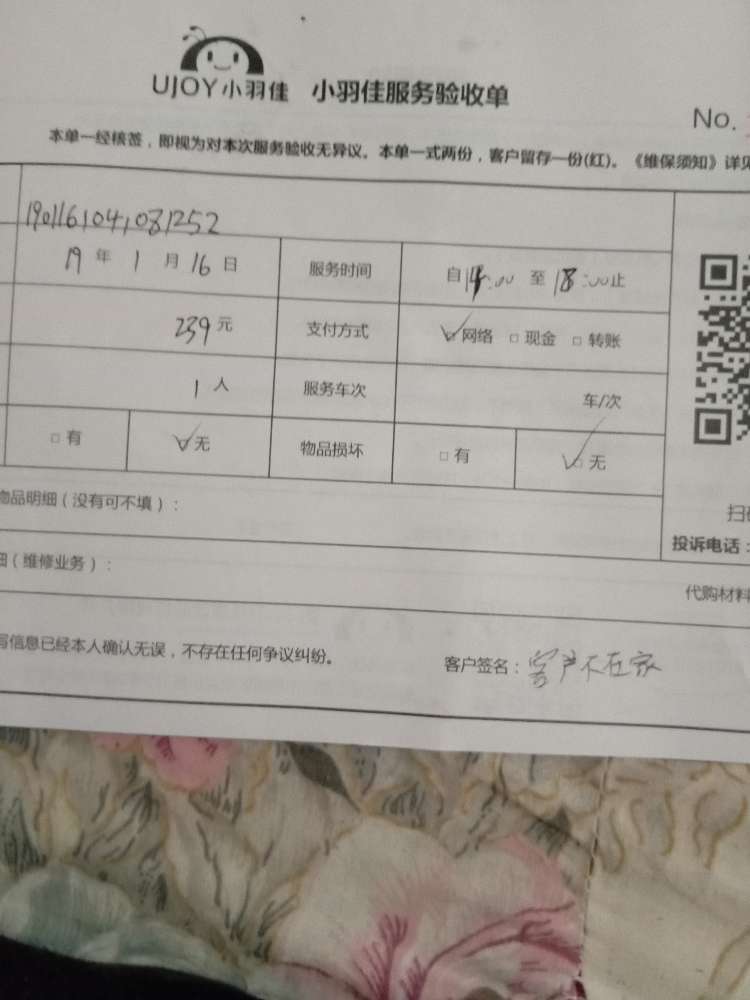 UJOY小羽佳 小羽佳服务验收单
No.
本单一经核签，即视为对本次服务验收无异议。本单一式两份，客户留存一份(红)。《维保须知》详见
1901161041081252
19年1月16日 服务时间 自14:00至18:00止
239元 支付方式 ☑网络 □现金 □转账
1人 服务车次 车/次
□有 ☑无 物品损坏 □有 ☑无
物品明细（没有可不填）：
扫
投诉电话：
细（维修业务）：
代购材料
写信息已经本人确认无误，不存在任何争议纠纷。 客户签名：客户不在家